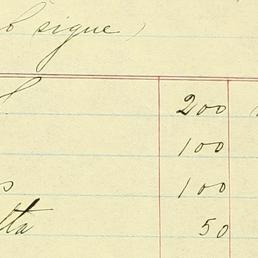 sigue)
200
100
s 100
tta 50